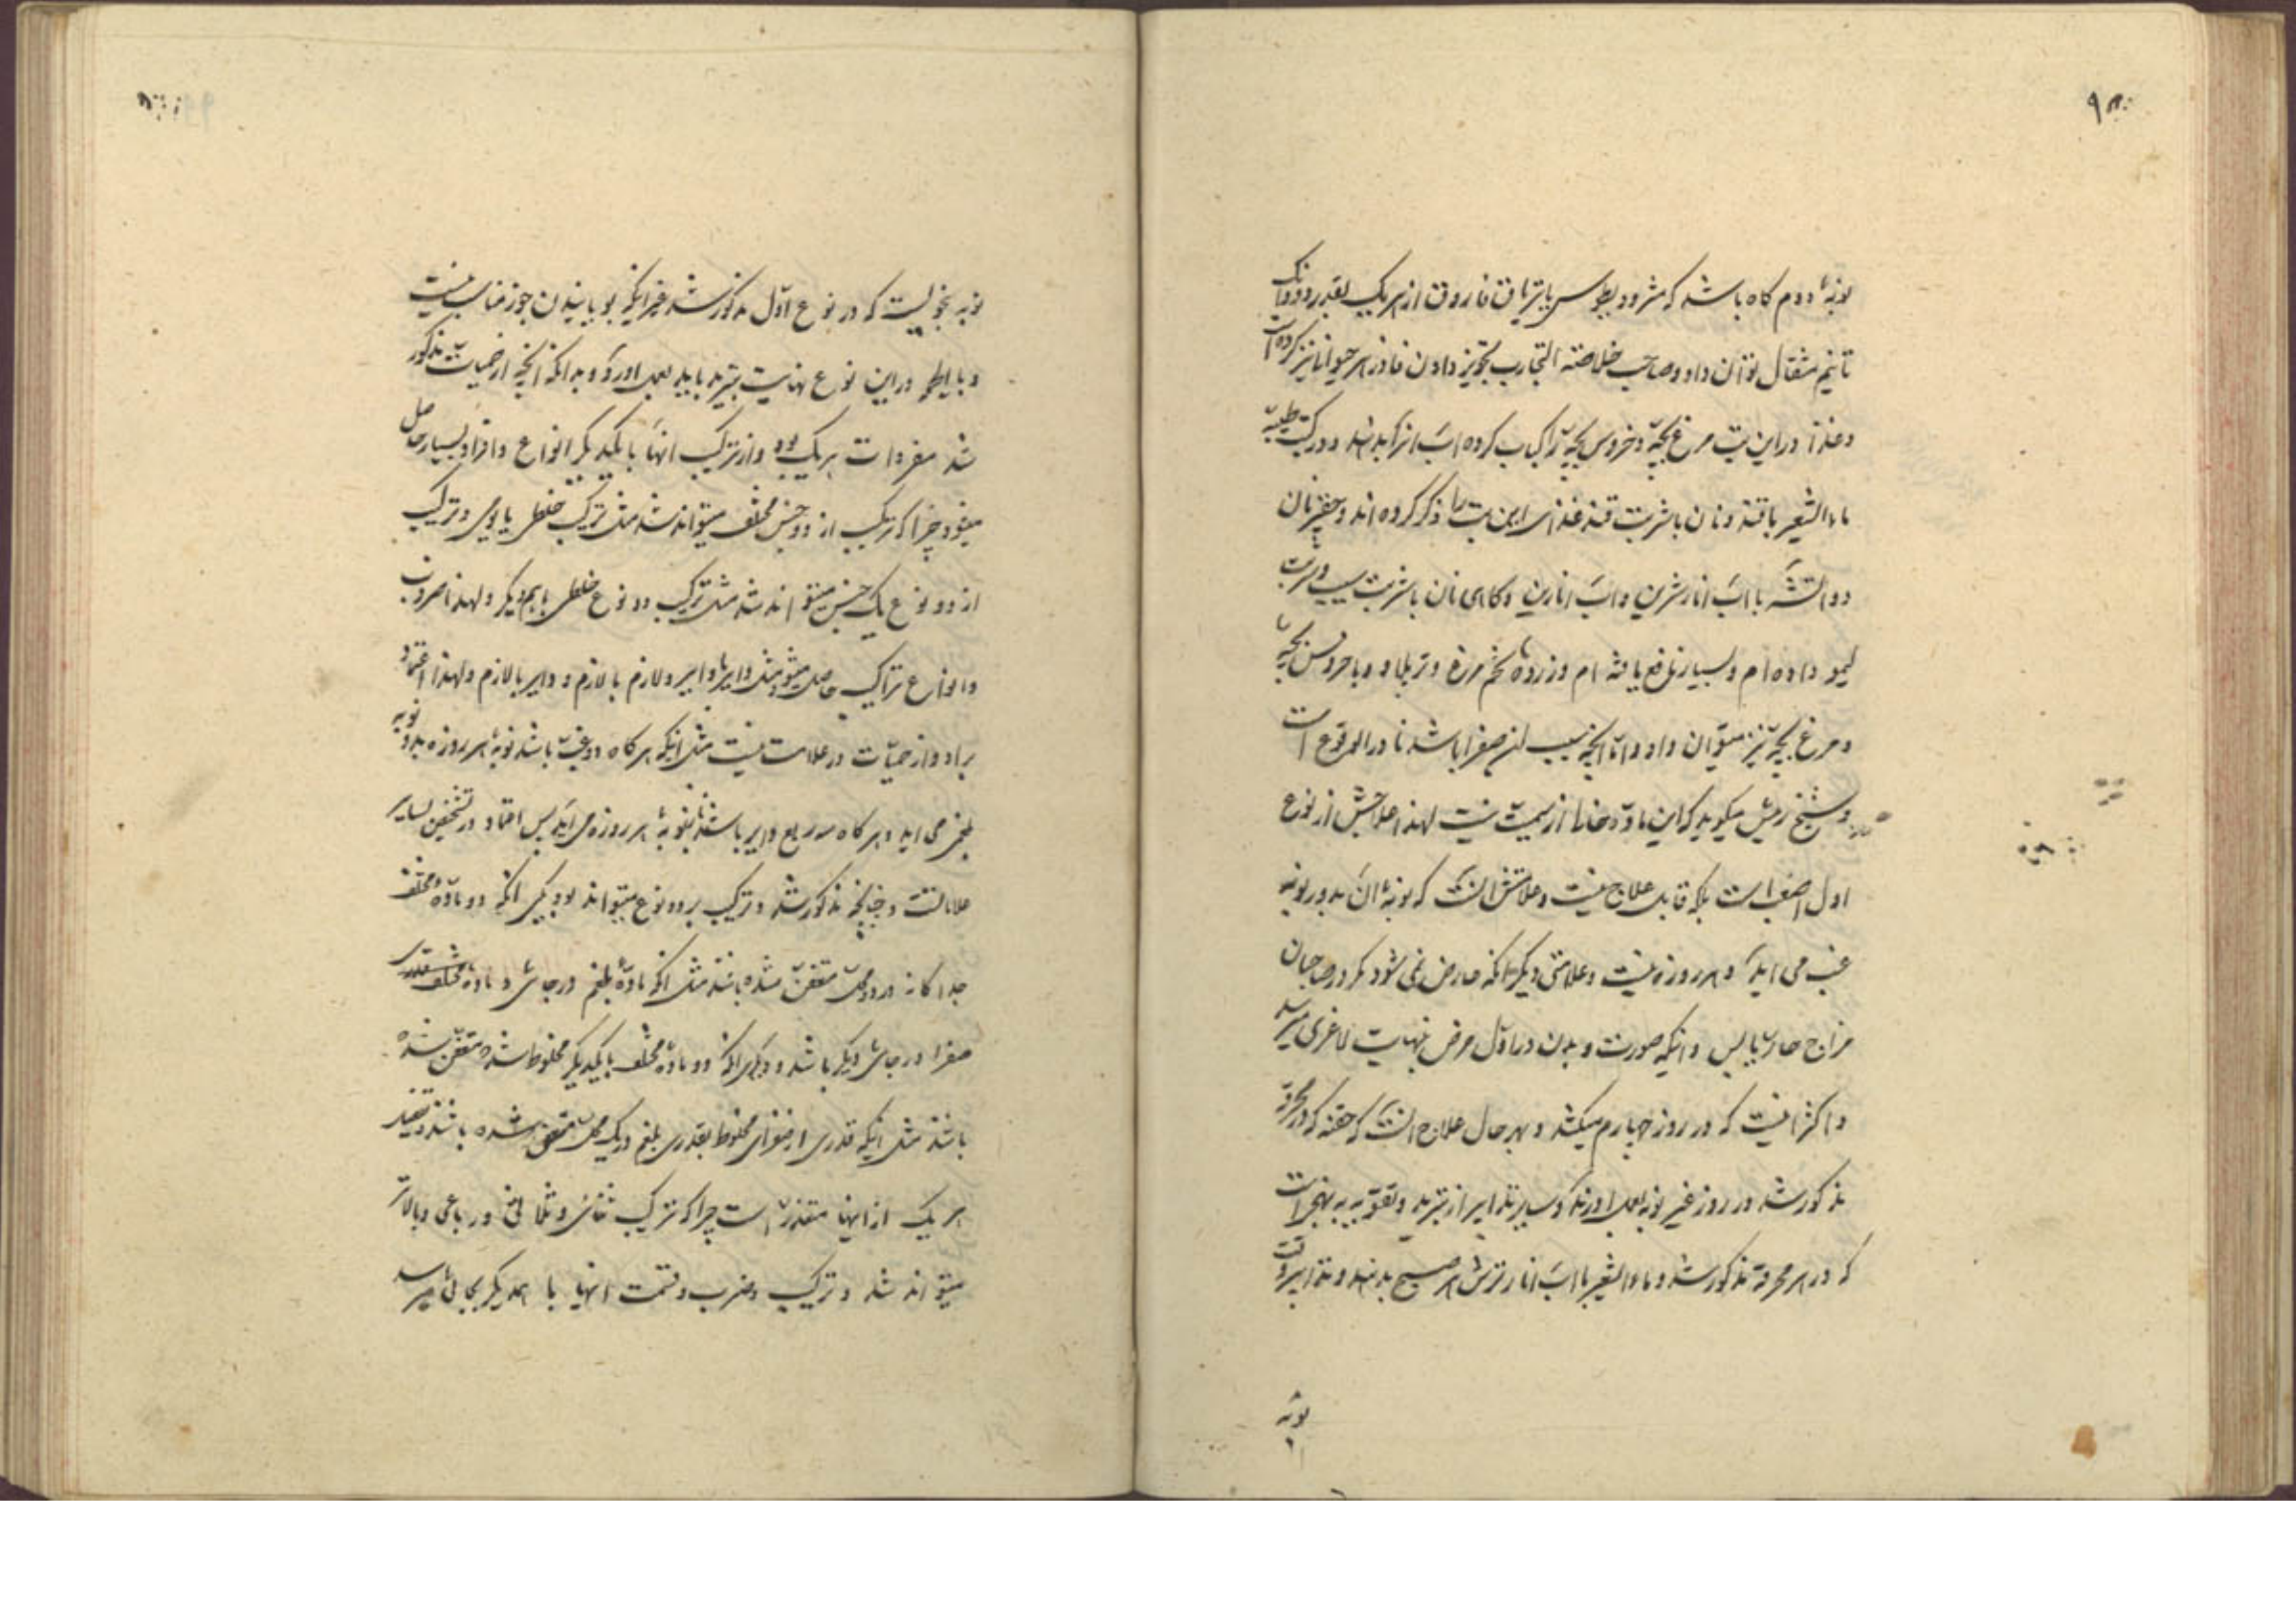 نوبهٔ دوم کاه باشد که مثرودیطوس یا تریاق فاروق از هر یک بقدر دو دانک
تا نیم مثقال توان داد و صاحب خلاصة التجارب تجویز دادن فادزهر حیوانی نیز کرده است
و غذا در این تب مرغ بچه و خروس بچه را کباب کرده اب انرا بدهند و در کتب طبیه
ماء الشعیر با قند و نان با شربت قند غذای این تب را ذکر کرده اند و حقیر نان
دو اتشه با اب انار شرین و اب انارین و کاهی نان با شربت سیب و شربت
لیمو داده ام و بسیار نافع یافته ام و زردهٔ تخم مرغ و تر پلاو و با خروس بچه
و مرغ بچه نیز میتوان داد و اما انچه سبب ان صفرا باشد نادر الوقوع است
و شیخ رئیس میکوید که این ماده خالی از سمیت نیست لهذا علاجش از نوع
اول اصعب است بلکه قابل علاج نیست و علامتش انست که نوبهٔ ان بدور نوبه
غب می اید و هر روزه نیست و علامتی دیکر انکه عارض نمی شود مکر در صاحبان
مزاج حار یابس و انکه صورت و بدن در اول مرض بنهایت لاغری میرسد
و اکثر انیست که در روز چهارم میکشد و بهر حال علاج انست که حقنه که در محرقه
مذکور شد در روز غیر نوبه بعمل اورند و سایر تدابیر از تبرید و تقویه به نهجی است
که در هر محرقه مذکور شد و ماء الشعیر با اب انار ترش هر صبح بدهند و تدابیر وقت
نوبه
نوبه بنحویست که در نوع اول مذکور شد غیر انکه بویانیدن جوز مناسب نیست
و بالجمله در این نوع نهایت تبرید باید بعمل اورد و بدانکه انچه از حمیات مذکور
شد مفردات هر یک بود و از ترکیب انها با یکدیکر انواع و افراد بسیار حاصل
میشود چرا که ترکیب از دو جنس مختلف میتواند شد مثل ترکیب خلطی با یومی و ترکیب
از دو نوع یک جنس میتواند شد مثل ترکیب دو نوع خلطی با هم دیکر و لهذا ضروب
و انواع تراکیب حاصل میشود مثل دایر با دایر و لازم با لازم و دایر با لازم و لهذا اعتماد
بر ادوار حمیات در علامت نیست مثل انکه هر کاه دو غب باشد نوبهٔ هر روزه بدور نوبه
بلغمی می اید و هر کاه سه ربع دایر باشد نوبهٔ هر روزه می اید پس اعتماد در تشخیص بسایر
علاماتست و چنانچه مذکور شد و ترکیب بر دو نوع میتواند بود یکی انکه دو مادهٔ مختلف
جدا کانه در دو محل متعفن شده باشند مثل انکه مادهٔ بلغم در جائی و مادهٔ
صفرا در جائی دیکر باشد و دیکری انکه دو مادهٔ مختلف با یکدیکر مخلوط شده متعفن شده
باشند مثل انکه قدری از صفرای مخلوط بقدری بلغم در یک محل متعفن شده باشند و تعفن
هر یک از اینها متعذر است چرا که ترکیب ثنائی و ثلاثی و رباعی و بالاتر
میتواند شد و ترکیب و ضرب و قسمت انها با همدیکر بجائی میرسد